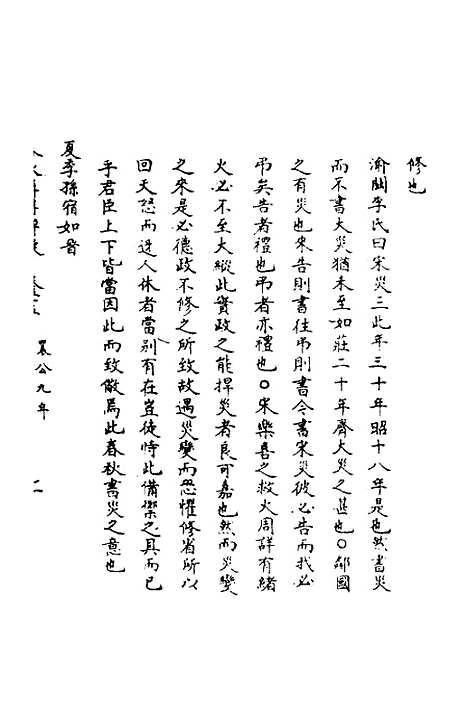 修也
渝關李氏曰宋災三此年三十年昭十八年是也然書災
而不書大災猶未至如莊二十年齊大災之甚也〇鄰國
之有災也來告則書往弔則書今書宋災彼必告而我必
弔矣告者禮也弔者亦禮也〇宋樂喜之救火周詳有緒
火必不至大縱此實政之能捍災者良可嘉也然而災變
之來是必德政不修之所致故遇災變而恐懼修省所以
回天怒而迓人休者當別有在豈徒恃此備禦之具而已
乎君臣上下皆當因此而致儆焉此春秋書災之意也
夏季孫宿如晉
襄公九年
二